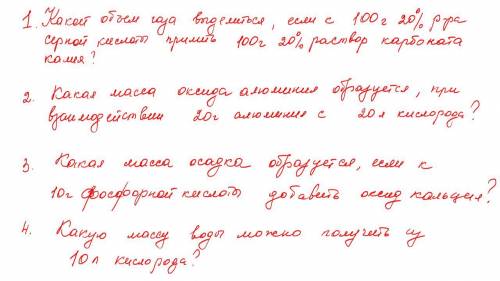 1. Какой объем газа выделиться, если с 100г 20% р-ра
серной кислоты прилить 100г 20% раствор карбоната
калия?
2. Какая масса оксида алюминия образуется, при
взаимодействии 20г алюминия с 20л кислорода?
3. Какая масса осадка образуется, если к
10г фосфорной кислоты добавить оксид кальция?
4. Какую массу воды можно получить из
10л кислорода?